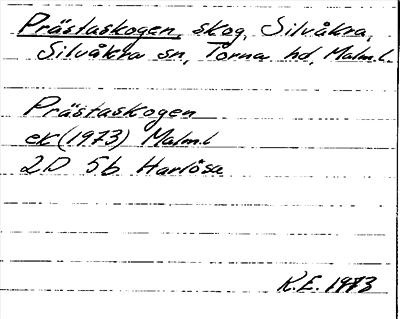 Prästaskogen, skog, Silvåkra,
Silvåkra sn, Torna hd, Malm.l.
Prästaskogen
ek (1973) Malm.l
2D 5b Harlösa
K.E. 1973